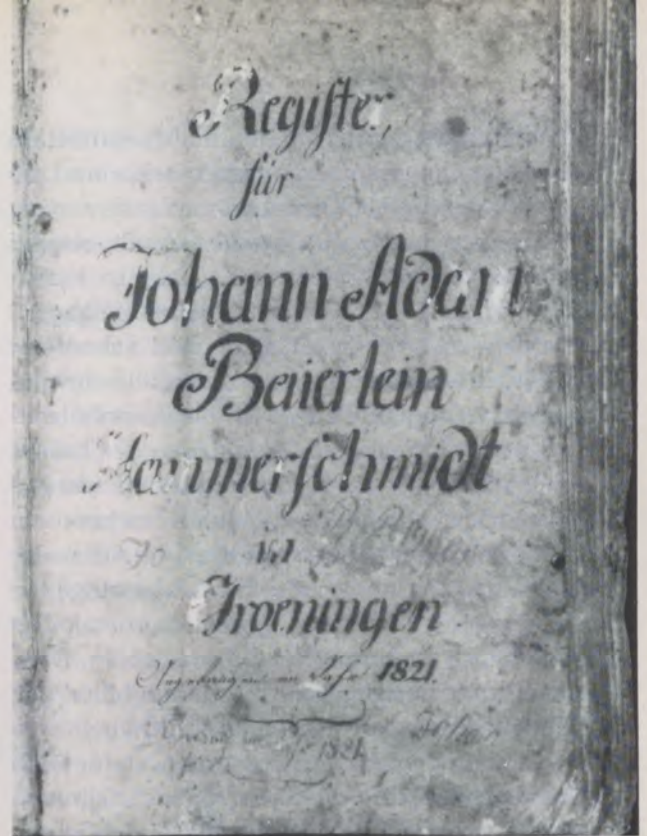 Register
für
Johann Adam
Beierlein
Hammerschmidt
in
Groeningen
Angefangen im Jahr 1821.
im 1821